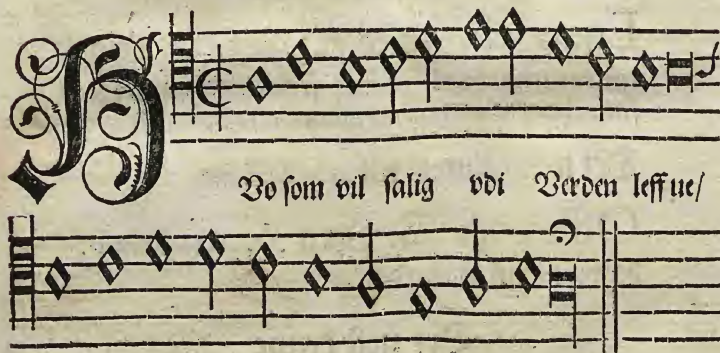 HVo som vil salig vdi Verden leffue/